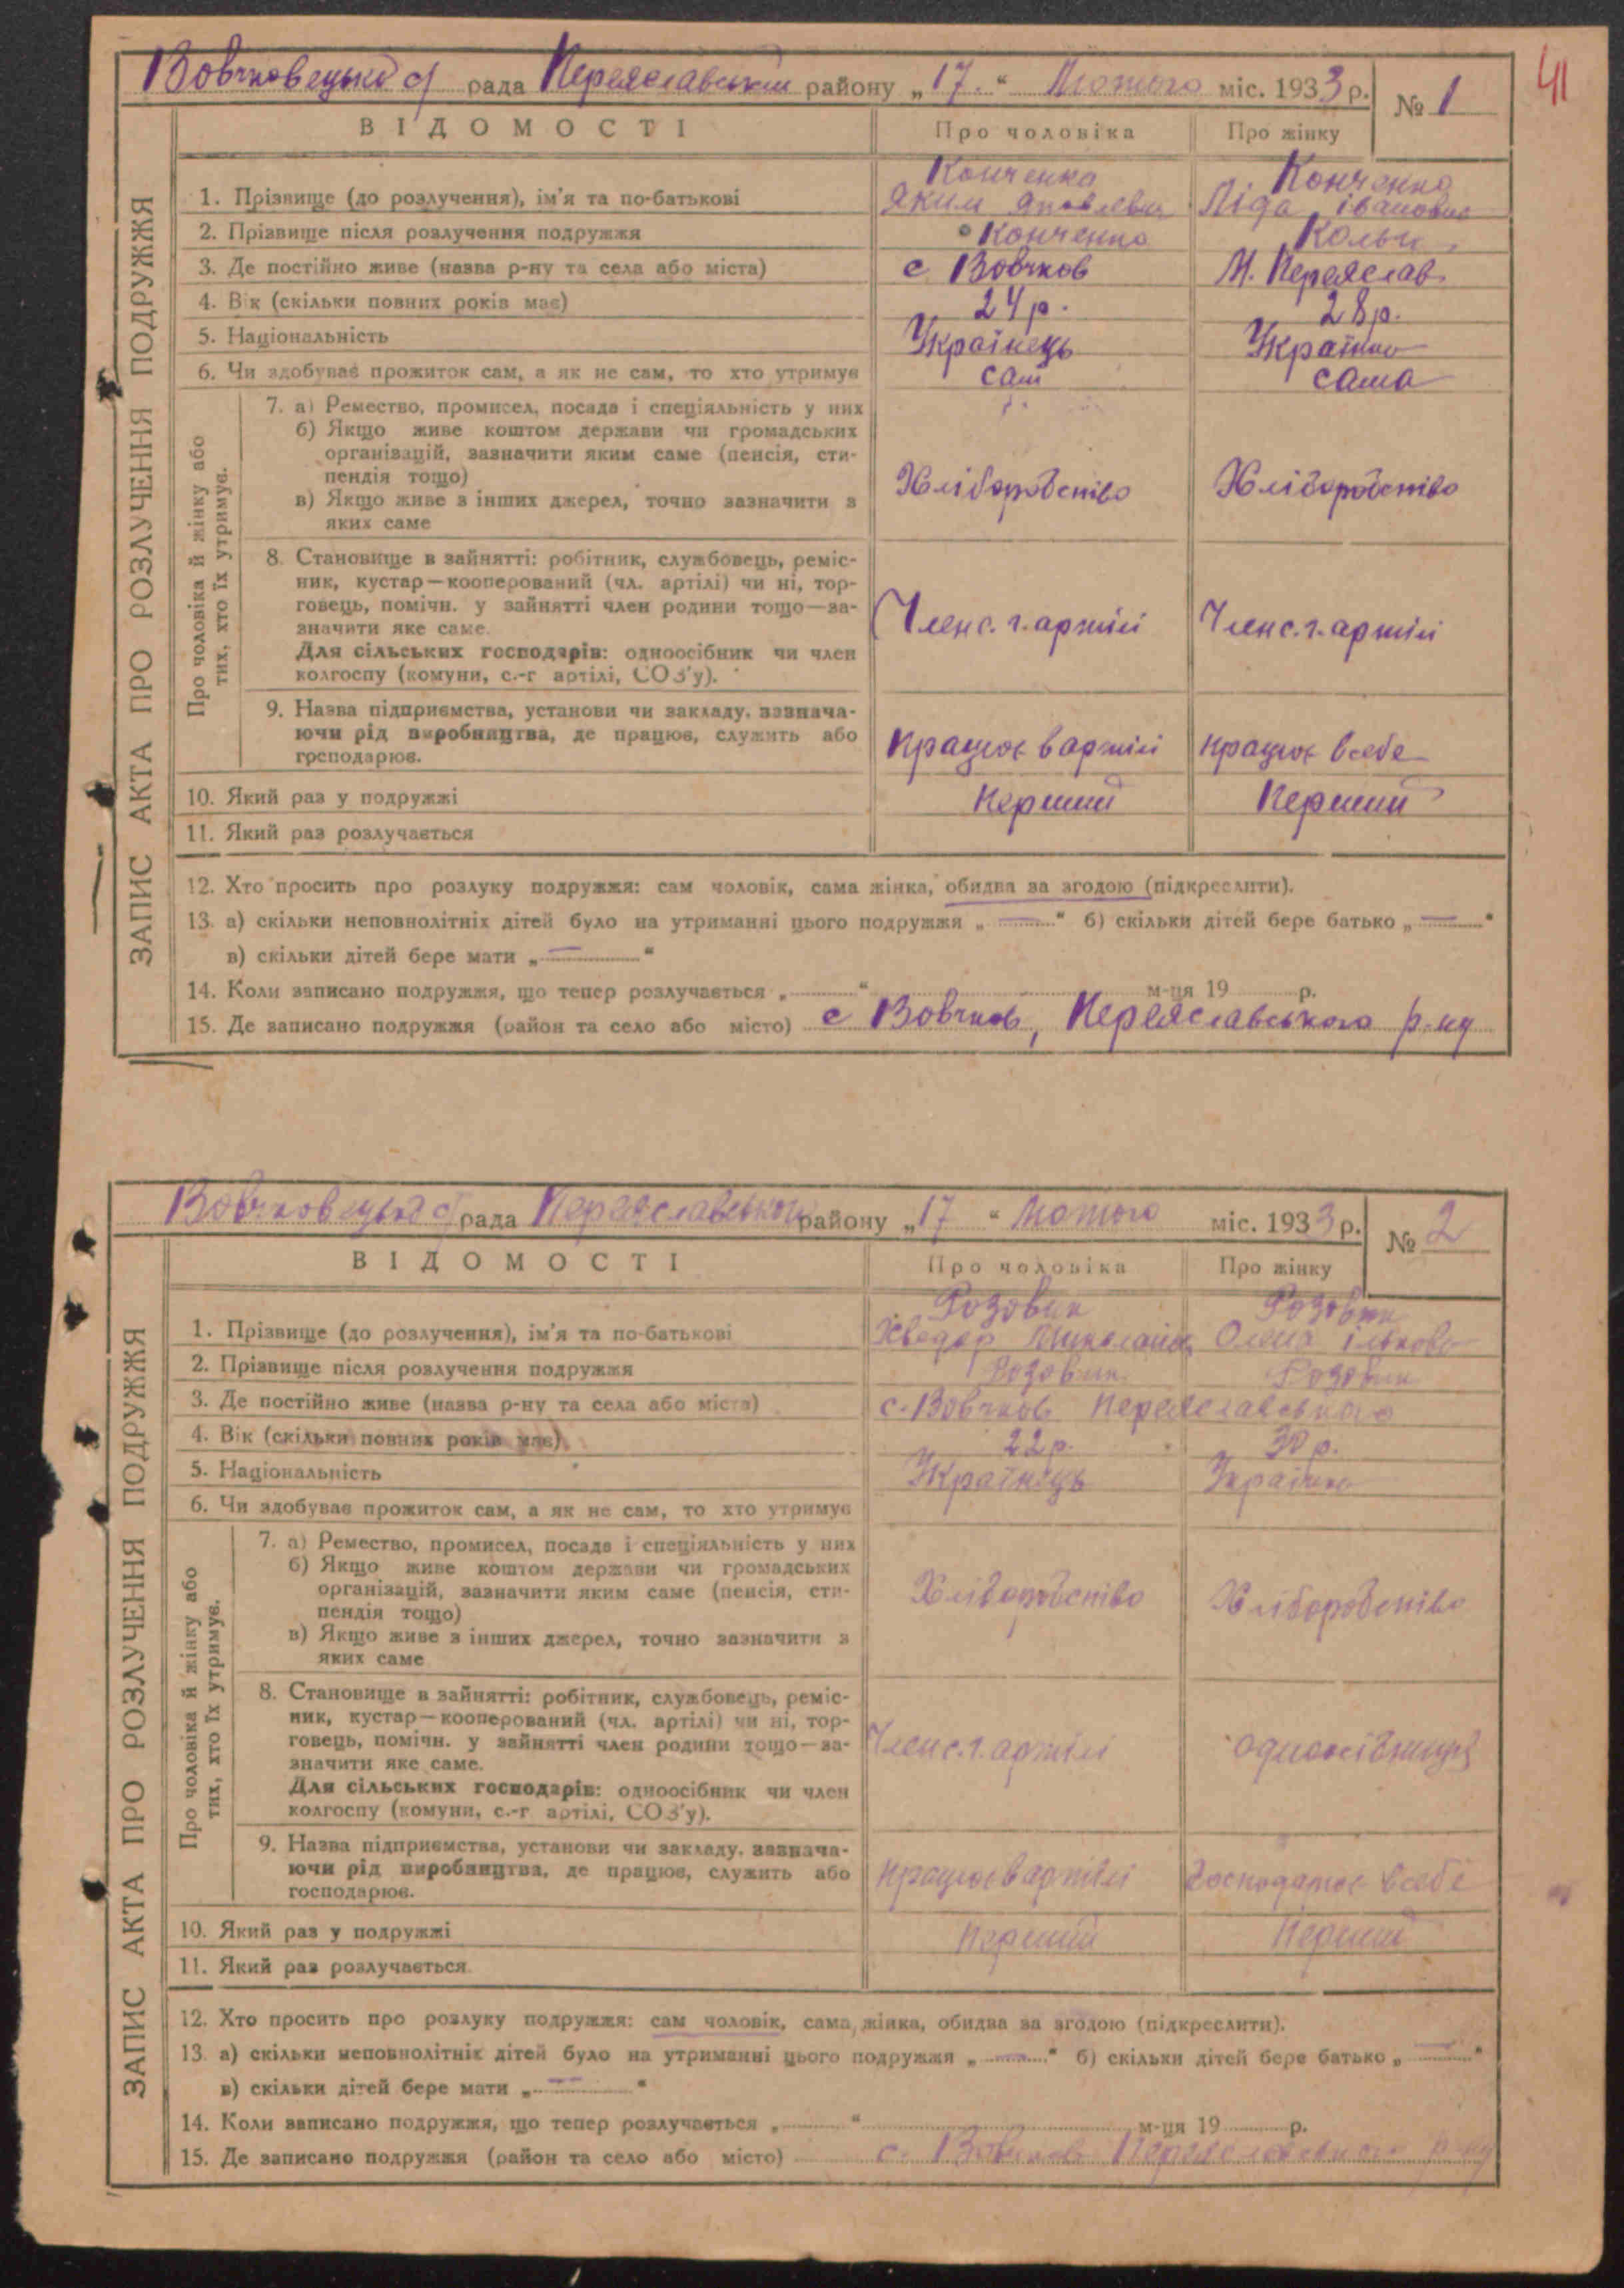 41
Вовчковецька с/ рада Переяславськ району „17.“ Лютого міс. 1933 р. № 1
ВІДОМОСТІ Про чоловіка Про жінку
ЗАПИС АКТА ПРО РОЗЛУЧЕННЯ ПОДРУЖЖЯ
Конченко Конченко
1. Прізвище (до розлучення), ім'я та по-батькові Яким Яковлевич Ліда Івановна
2. Прізвище після розлучення подружжя Конченко
3. Де постійно живе (назва р-ну та села або міста) с Вовчков М. Переяслав
4. Вік (скільки повних років має) 24 р. 28 р.
5. Національність Українець Українка
6. Чи здобуває прожиток сам, а як не сам, то хто утримує сам сама
Про чоловіка й жінку або
тих, хто їх утримує.
7. а) Ремество, промисел, посада і спеціяльність у них
б) Якщо живе коштом держави чи громадських
організацій, зазначити яким саме (пенсія, сти-
пендія тощо)
в) Якщо живе з інших джерел, точно зазначити з
яких саме
Хліборобство Хліборобство
8. Становище в зайнятті: робітник, службовець, реміс-
ник, кустар—кооперований (чл. артілі) чи ні, тор-
говець, помічн. у зайнятті член родини тощо—за-
значити яке саме.
Для сільських господарів: одноосібник чи член
колгоспу (комуни, с.-г артілі, СОЗ'у).
Член с. г. артілі Член с. г. артілі
9. Назва підприємства, установи чи закладу, зазнача-
ючи рід виробництва, де працює, служить або
господарює.
працює в артілі працює в себе
10. Який раз у подружжі Перший Перший
11. Який раз розлучається
12. Хто просить про розлуку подружжя: сам чоловік, сама жінка, обидва за згодою (підкреслити).
13. а) скільки неповнолітніх дітей було на утриманні цього подружжя „ — “ б) скільки дітей бере батько „ — “
в) скільки дітей бере мати „ — “
14. Коли записано подружжя, що тепер розлучається „ “ м-ця 19 р.
15. Де записано подружжя (район та село або місто) с Вовчков, Переяславського р-ну
Вовчковецька с/ рада Переяславського району „17 “ Лютого міс. 1933 р. № 2
ВІДОМОСТІ Про чоловіка Про жінку
ЗАПИС АКТА ПРО РОЗЛУЧЕННЯ ПОДРУЖЖЯ
Розовик Розовик
1. Прізвище (до розлучення), ім'я та по-батькові Хведор Миколайов Олена
2. Прізвище після розлучення подружжя Розовик Розовик
3. Де постійно живе (назва р-ну та села або міста) с. Вовчков Переяславського
4. Вік (скільки повних років має) 22 р. 30 р.
5. Національність Українець Українка
6. Чи здобуває прожиток сам, а як не сам, то хто утримує
Про чоловіка й жінку або
тих, хто їх утримує.
7. а) Ремество, промисел, посада і спеціяльність у них
б) Якщо живе коштом держави чи громадських
організацій, зазначити яким саме (пенсія, сти-
пендія тощо)
в) Якщо живе з інших джерел, точно зазначити з
яких саме
Хліборобство Хліборобство
8. Становище в зайнятті: робітник, службовець, реміс-
ник, кустар—кооперований (чл. артілі) чи ні, тор-
говець, помічн. у зайнятті член родини тощо—за-
значити яке саме.
Для сільських господарів: одноосібник чи член
колгоспу (комуни, с.-г артілі, СОЗ'у).
Член с. г. артілі одноосібниця
9. Назва підприємства, установи чи закладу, зазнача-
ючи рід виробництва, де працює, служить або
господарює.
працює в артілі господарює в себе
10. Який раз у подружжі Перший Перший
11. Який раз розлучається
12. Хто просить про розлуку подружжя: сам чоловік, сама жінка, обидва за згодою (підкреслити).
13. а) скільки неповнолітніх дітей було на утриманні цього подружжя „ — “ б) скільки дітей бере батько „ — “
в) скільки дітей бере мати „ — “
14. Коли записано подружжя, що тепер розлучається „ “ м-ця 19 р.
15. Де записано подружжя (район та село або місто) с. Вовчков Переяславського р-ну